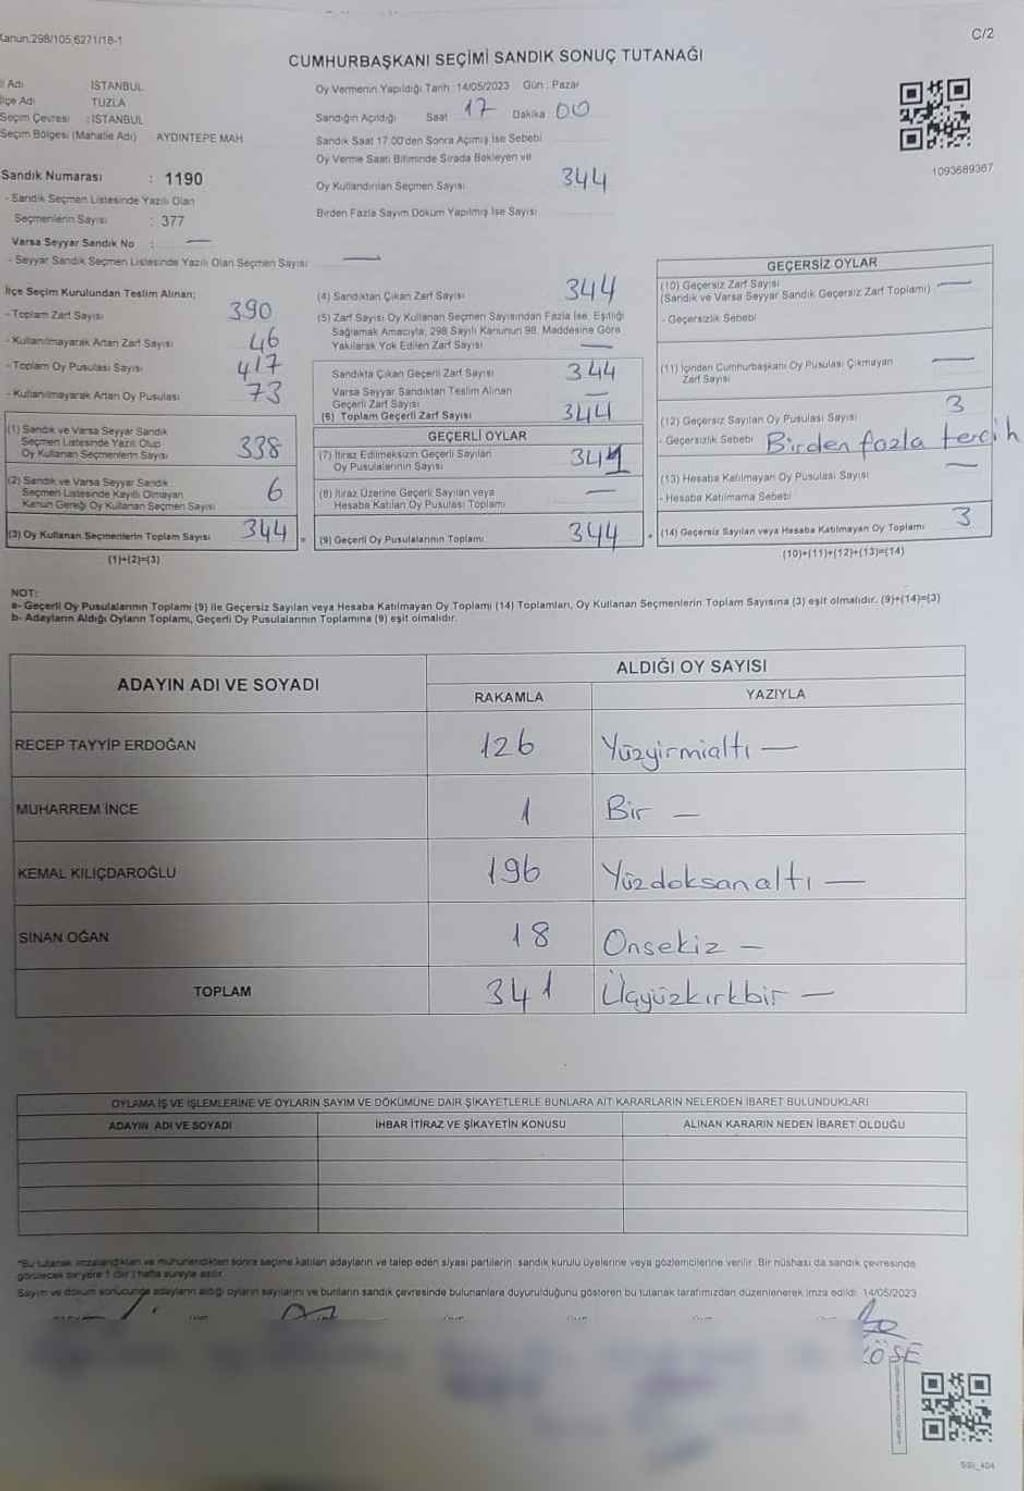 Kanun.298/105,6271/18-1
C/2
CUMHURBAŞKANI SEÇİMİ SANDIK SONUÇ TUTANAĞI
İl Adı İSTANBUL
İlçe Adı TUZLA
Seçim Çevresi : İSTANBUL
Seçim Bölgesi (Mahalle Adı) AYDINTEPE MAH
Sandık Numarası : 1190
- Sandık Seçmen Listesinde Yazılı Olan
Seçmenlerin Sayısı : 377
Varsa Seyyar Sandık No : —
- Seyyar Sandık Seçmen Listesinde Yazılı Olan Seçmen Sayısı —
Oy Vermenin Yapıldığı Tarih : 14/05/2023 Gün : Pazar
Sandığın Açıldığı Saat 17 Dakika : 00
Sandık Saat 17.00'den Sonra Açılmış İse Sebebi
Oy Verme Saati Bitiminde Sırada Bekleyen ve
Oy Kullandırılan Seçmen Sayısı 344
Birden Fazla Sayım Döküm Yapılmış İse Sayısı
1093689367
İlçe Seçim Kurulundan Teslim Alınan;
- Toplam Zarf Sayısı 390
- Kullanılmayarak Artan Zarf Sayısı 46
- Toplam Oy Pusulası Sayısı 417
- Kullanılmayarak Artan Oy Pusulası 73
(1) Sandık ve Varsa Seyyar Sandık
Seçmen Listesinde Yazılı Olup
Oy Kullanan Seçmenlerin Sayısı 338
(2) Sandık ve Varsa Seyyar Sandık
Seçmen Listesinde Kayıtlı Olmayan
Kanun Gereği Oy Kullanan Seçmen Sayısı 6
(3) Oy Kullanan Seçmenlerin Toplam Sayısı 344
(1)+(2)=(3)
(4) Sandıktan Çıkan Zarf Sayısı 344
(5) Zarf Sayısı Oy Kullanan Seçmen Sayısından Fazla İse, Eşitliği
Sağlamak Amacıyla, 298 Sayılı Kanunun 98. Maddesine Göre
Yakılarak Yok Edilen Zarf Sayısı —
Sandıkta Çıkan Geçerli Zarf Sayısı 344
Varsa Seyyar Sandıktan Teslim Alınan
Geçerli Zarf Sayısı —
(6) Toplam Geçerli Zarf Sayısı 344
GEÇERLİ OYLAR
(7) İtiraz Edilmeksizin Geçerli Sayılan
Oy Pusulalarının Sayısı 341
(8) İtiraz Üzerine Geçerli Sayılan veya
Hesaba Katılan Oy Pusulası Toplamı —
(9) Geçerli Oy Pusulalarının Toplamı 344
GEÇERSİZ OYLAR
(10) Geçersiz Zarf Sayısı
(Sandık ve Varsa Seyyar Sandık Geçersiz Zarf Toplamı) —
- Geçersizlik Sebebi
(11) İçinden Cumhurbaşkanı Oy Pusulası Çıkmayan
Zarf Sayısı —
(12) Geçersiz Sayılan Oy Pusulası Sayısı 3
- Geçersizlik Sebebi Birden fazla tercih
(13) Hesaba Katılmayan Oy Pusulası Sayısı —
- Hesaba Katılmama Sebebi
(14) Geçersiz Sayılan veya Hesaba Katılmayan Oy Toplamı 3
(10)+(11)+(12)+(13)=(14)
NOT:
a- Geçerli Oy Pusulalarının Toplamı (9) ile Geçersiz Sayılan veya Hesaba Katılmayan Oy Toplamı (14) Toplamları, Oy Kullanan Seçmenlerin Toplam Sayısına (3) eşit olmalıdır. (9)+(14)=(3)
b- Adayların Aldığı Oyların Toplamı, Geçerli Oy Pusulalarının Toplamına (9) eşit olmalıdır.
ADAYIN ADI VE SOYADI ALDIĞI OY SAYISI
RAKAMLA YAZIYLA
RECEP TAYYİP ERDOĞAN 126 Yüzyirmialtı —
MUHARREM İNCE 1 Bir —
KEMAL KILIÇDAROĞLU 196 Yüzdoksanaltı —
SİNAN OĞAN 18 Onsekiz —
TOPLAM 341 Üçyüzkırkbir —
OYLAMA İŞ VE İŞLEMLERİNE VE OYLARIN SAYIM VE DÖKÜMÜNE DAİR ŞİKAYETLERLE BUNLARA AİT KARARLARIN NELERDEN İBARET BULUNDUKLARI
ADAYIN ADI VE SOYADI İHBAR İTİRAZ VE ŞİKAYETİN KONUSU ALINAN KARARIN NEDEN İBARET OLDUĞU
*Bu tutanak imzalandıktan ve mühürlendikten sonra seçime katılan adayların ve talep eden siyasi partilerin sandık kurulu üyelerine veya gözlemcilerine verilir. Bir nüshası da sandık çevresinde
görülecek bir yere 1 (bir) hafta süreyle asılır.
Sayım ve döküm sonucunda adayların aldığı oyların sayılarını ve bunların sandık çevresinde bulunanlara duyurulduğunu gösteren bu tutanak tarafımızdan düzenlenerek imza edildi. 14/05/2023
KÖSE